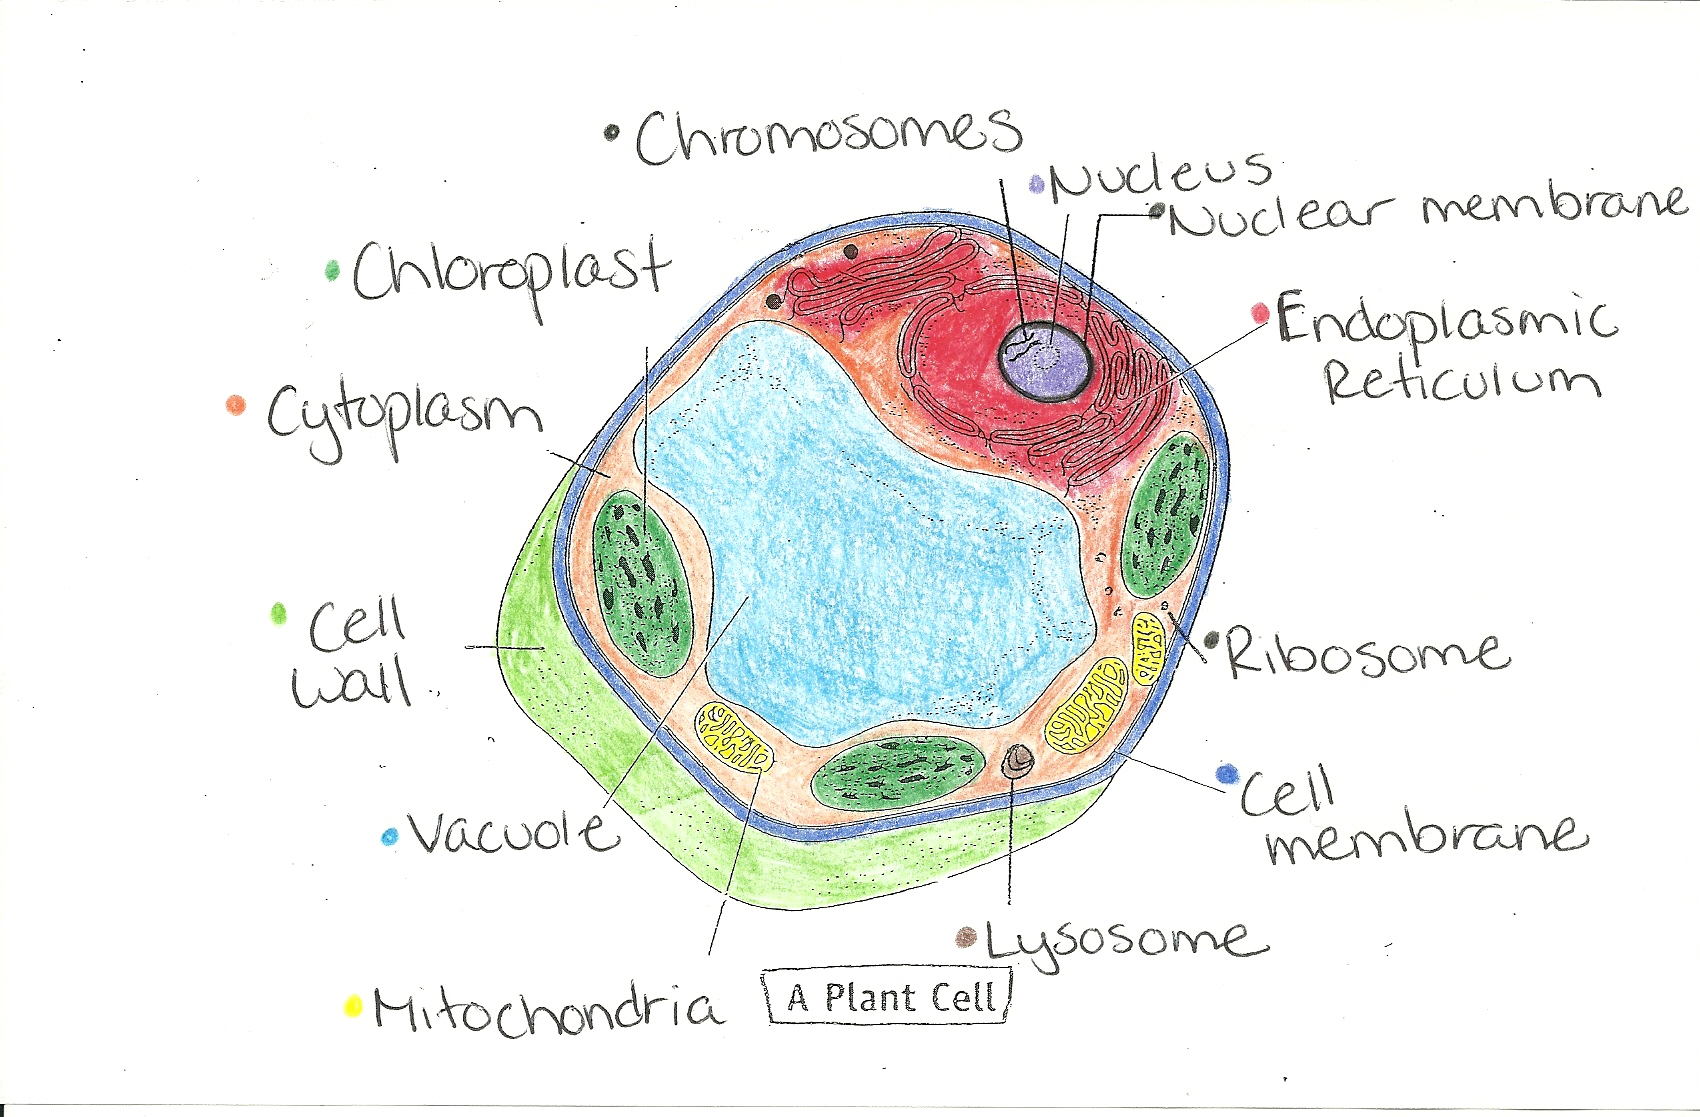 Chromosomes
Nucleus
Nuclear membrane
Chloroplast
Endoplasmic
Reticulum
Cytoplasm
Cell
Wall
Ribosome
Cell
membrane
Vacuole
Lysosome
Mitochondria
A Plant Cell